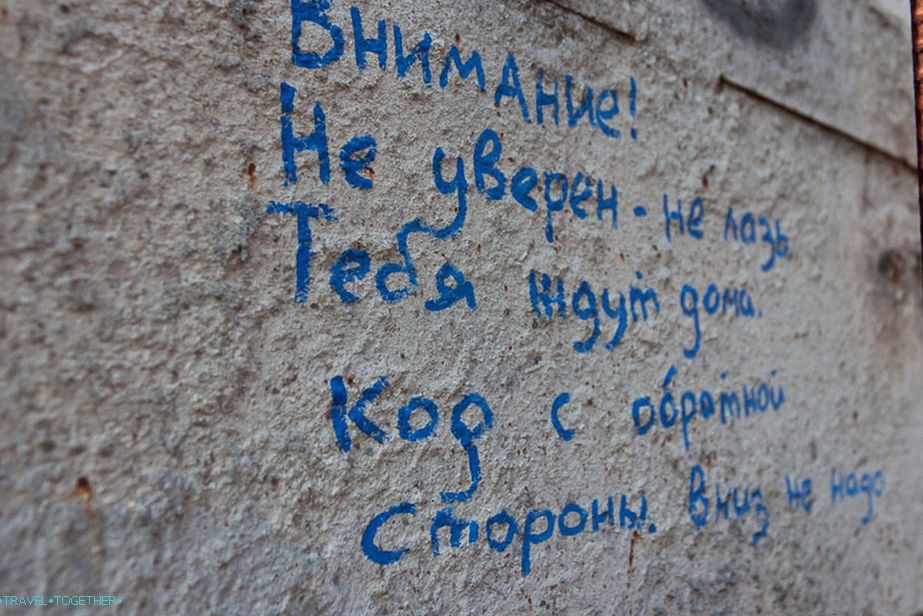 Внимание!
Не уверен - не лазь
Тебя ждут дома.
Код с обратной
стороны. Вниз не надо
•TRAVEL•TOGETHER•